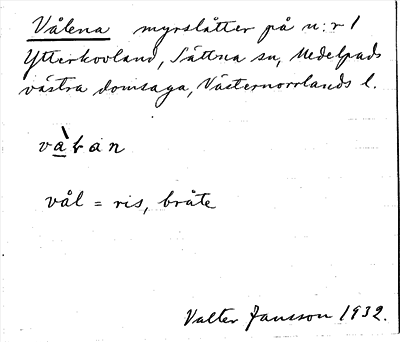 Vålena myrslåtter på n:r 1
Ytterkovland, Sättna sn, Medelpads
västra domsaga, Västernorrlands l.
vål = ris, bråte
Valter Jansson 1932.